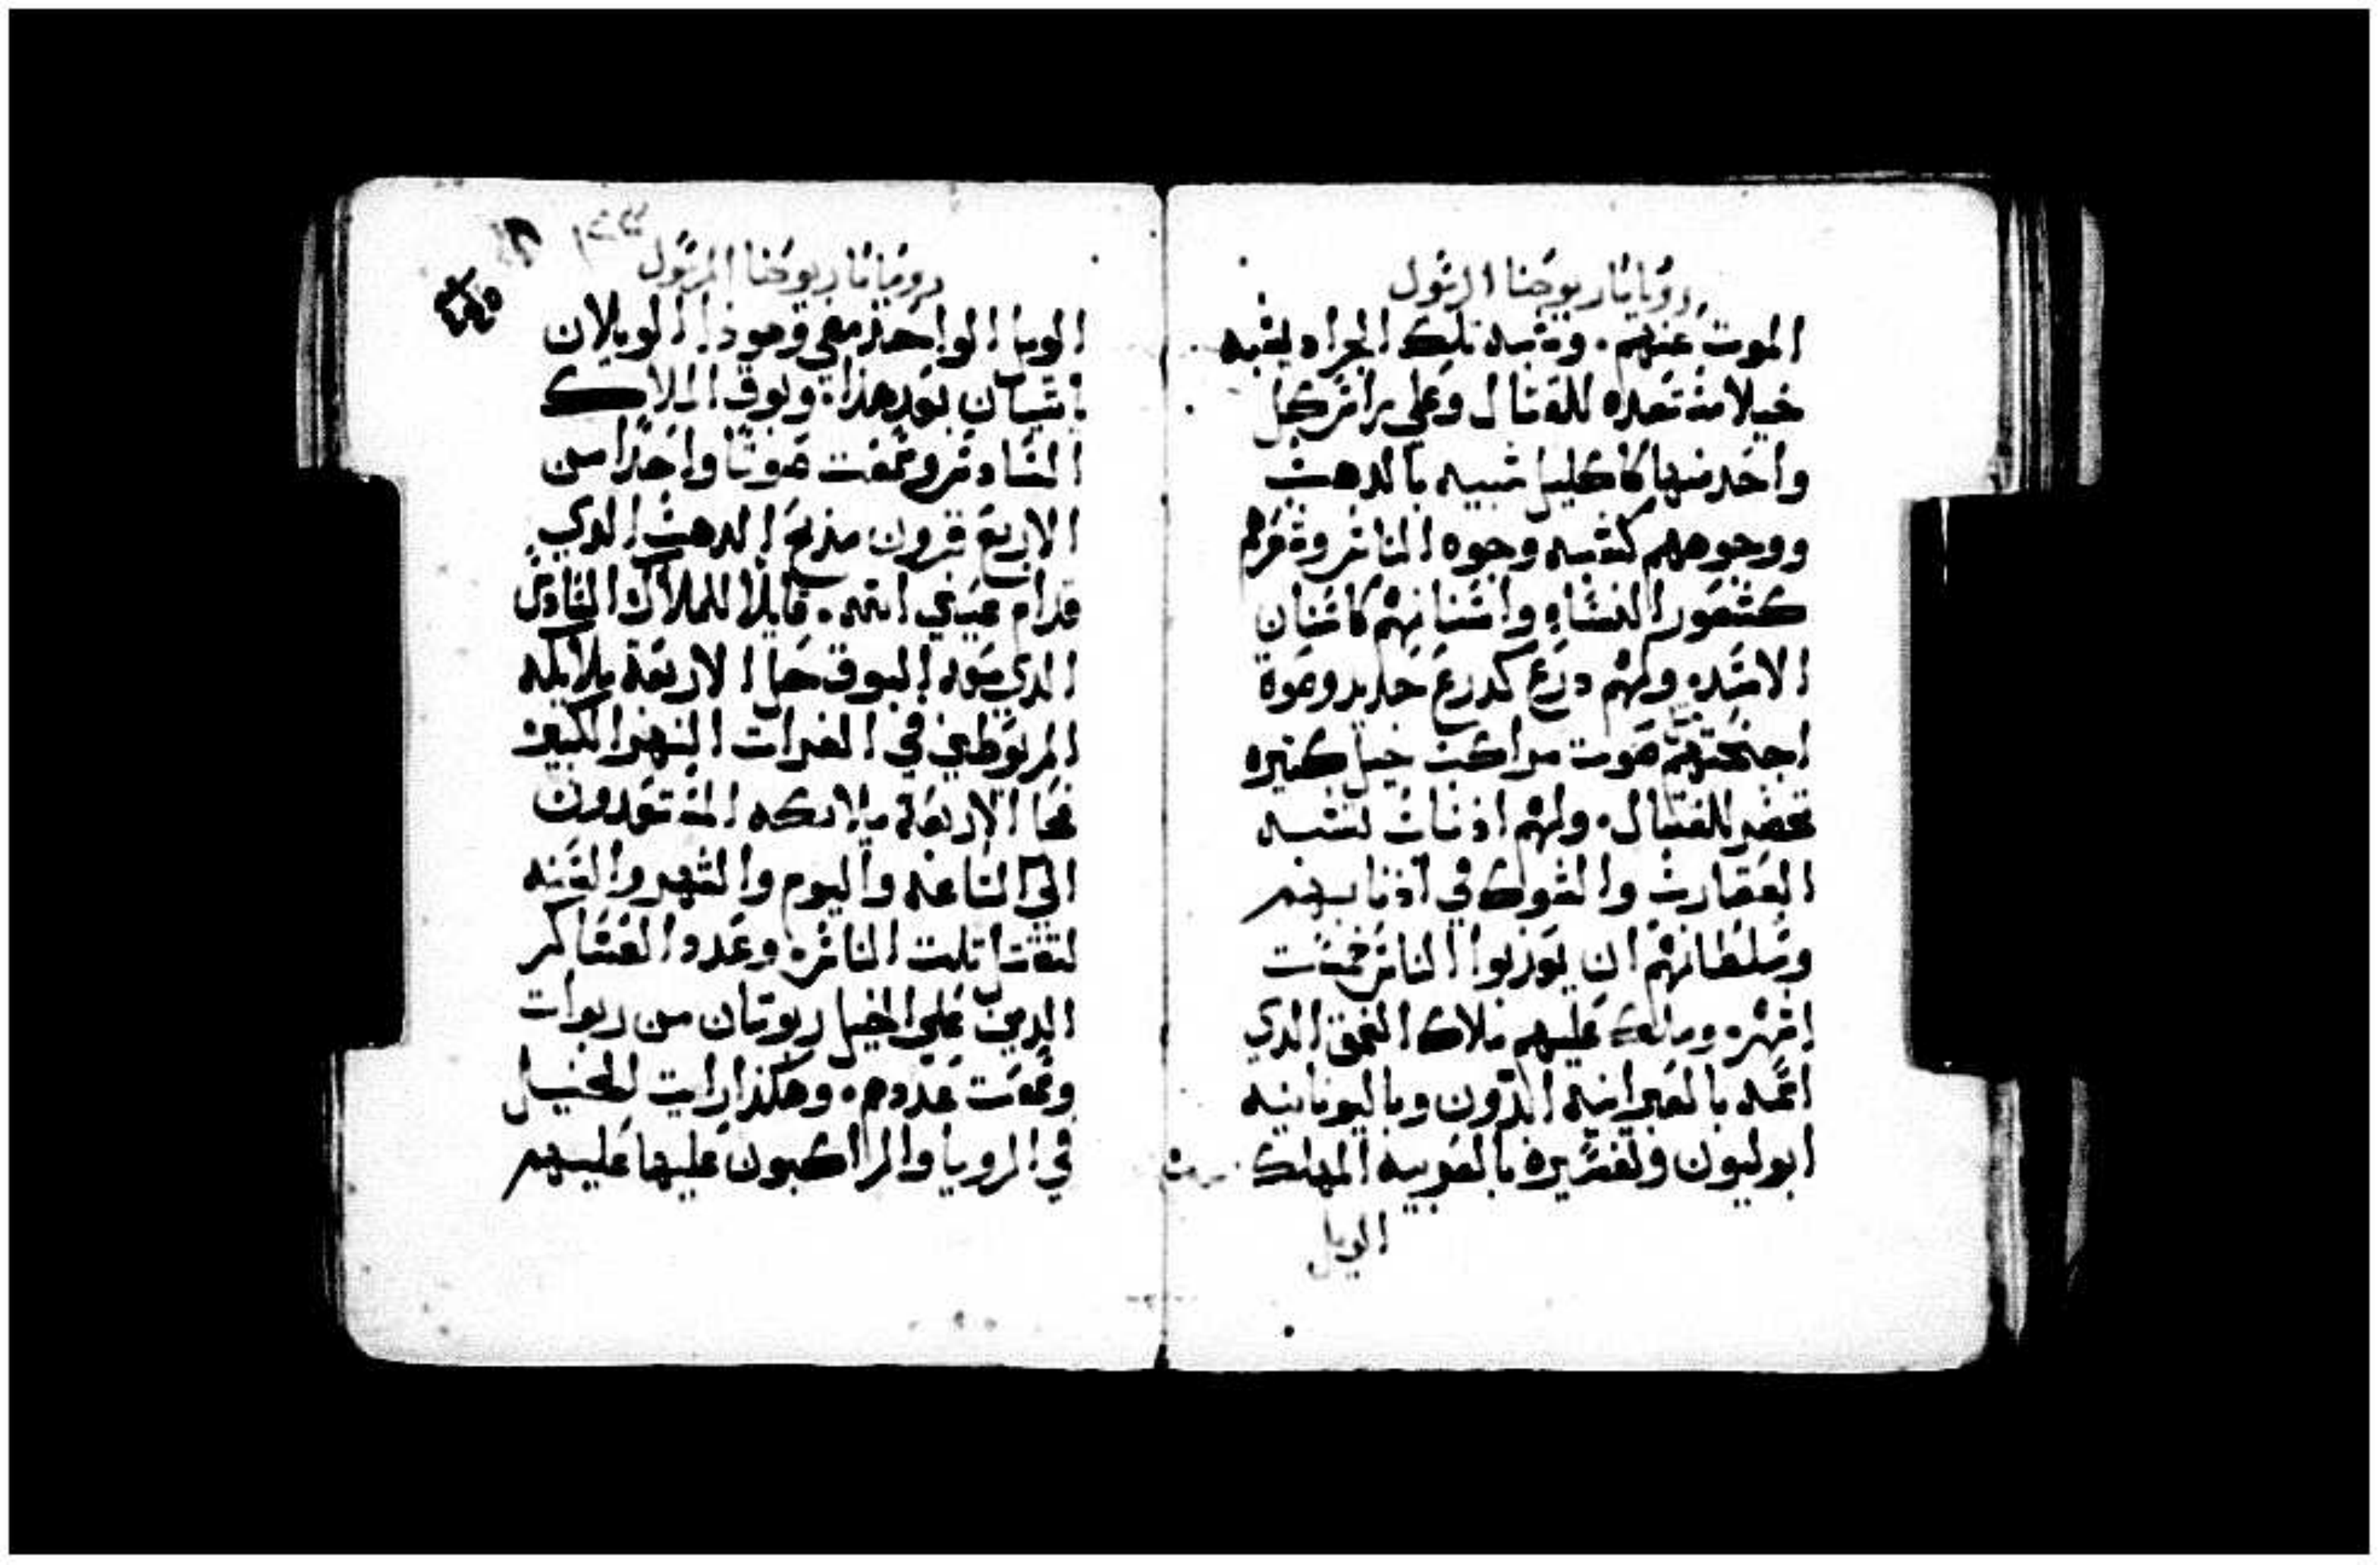 رويا مار يوحنا الرسول
الموت عنهم. وشبه تلك الجراد يشبه
خيلا مستعده للقتال وعلي راس كل
واحد منها كاكليل شبيه بالدهب
ووجوههم كشبه وجوه الناس وشعرهم
كشعور النساء واسنانهم كاسنان
الاسد. ولهم درع كدرع حديد وصوة
اجنحتهم صوت مراكب خيل كتيره
تحضر للقتال. ولهم اذناب تشبه
العقارب والشوك في اذنابهم
وسلطانهم ان يوذبوا الناس خمست
اشهر. ومالك عليهم ملاك العمق الدي
اسمه بالعبرانيه ابدون وباليونانيه
ابوليون وتفسيره بالعربيه المهلك
الويل
رويا مار يوحنا الرسول
الويل الواحد مضي وهوذا الويلان
ياتيان بعد هذا. وبوق الملاك
السادس وسمعت صوتا واحدا من
الاربع قرون مذبح الدهب الدي
قدام عيني الله. قايلا للملاك السادس
الدي معه البوق حل الاربعة ملايكه
المربوطين في الفرات النهر الكبير
فحل الاربعة ملايكه المستعدون
الي الساعه واليوم والشهر والسنه
لتقتل تلت الناس. وعدد العساكر
الدين علي الخيل ربوتان من ربوات
وسمعت عددهم. وهكذا رايت الخيل
في الرويا والراكبون عليها عليهم